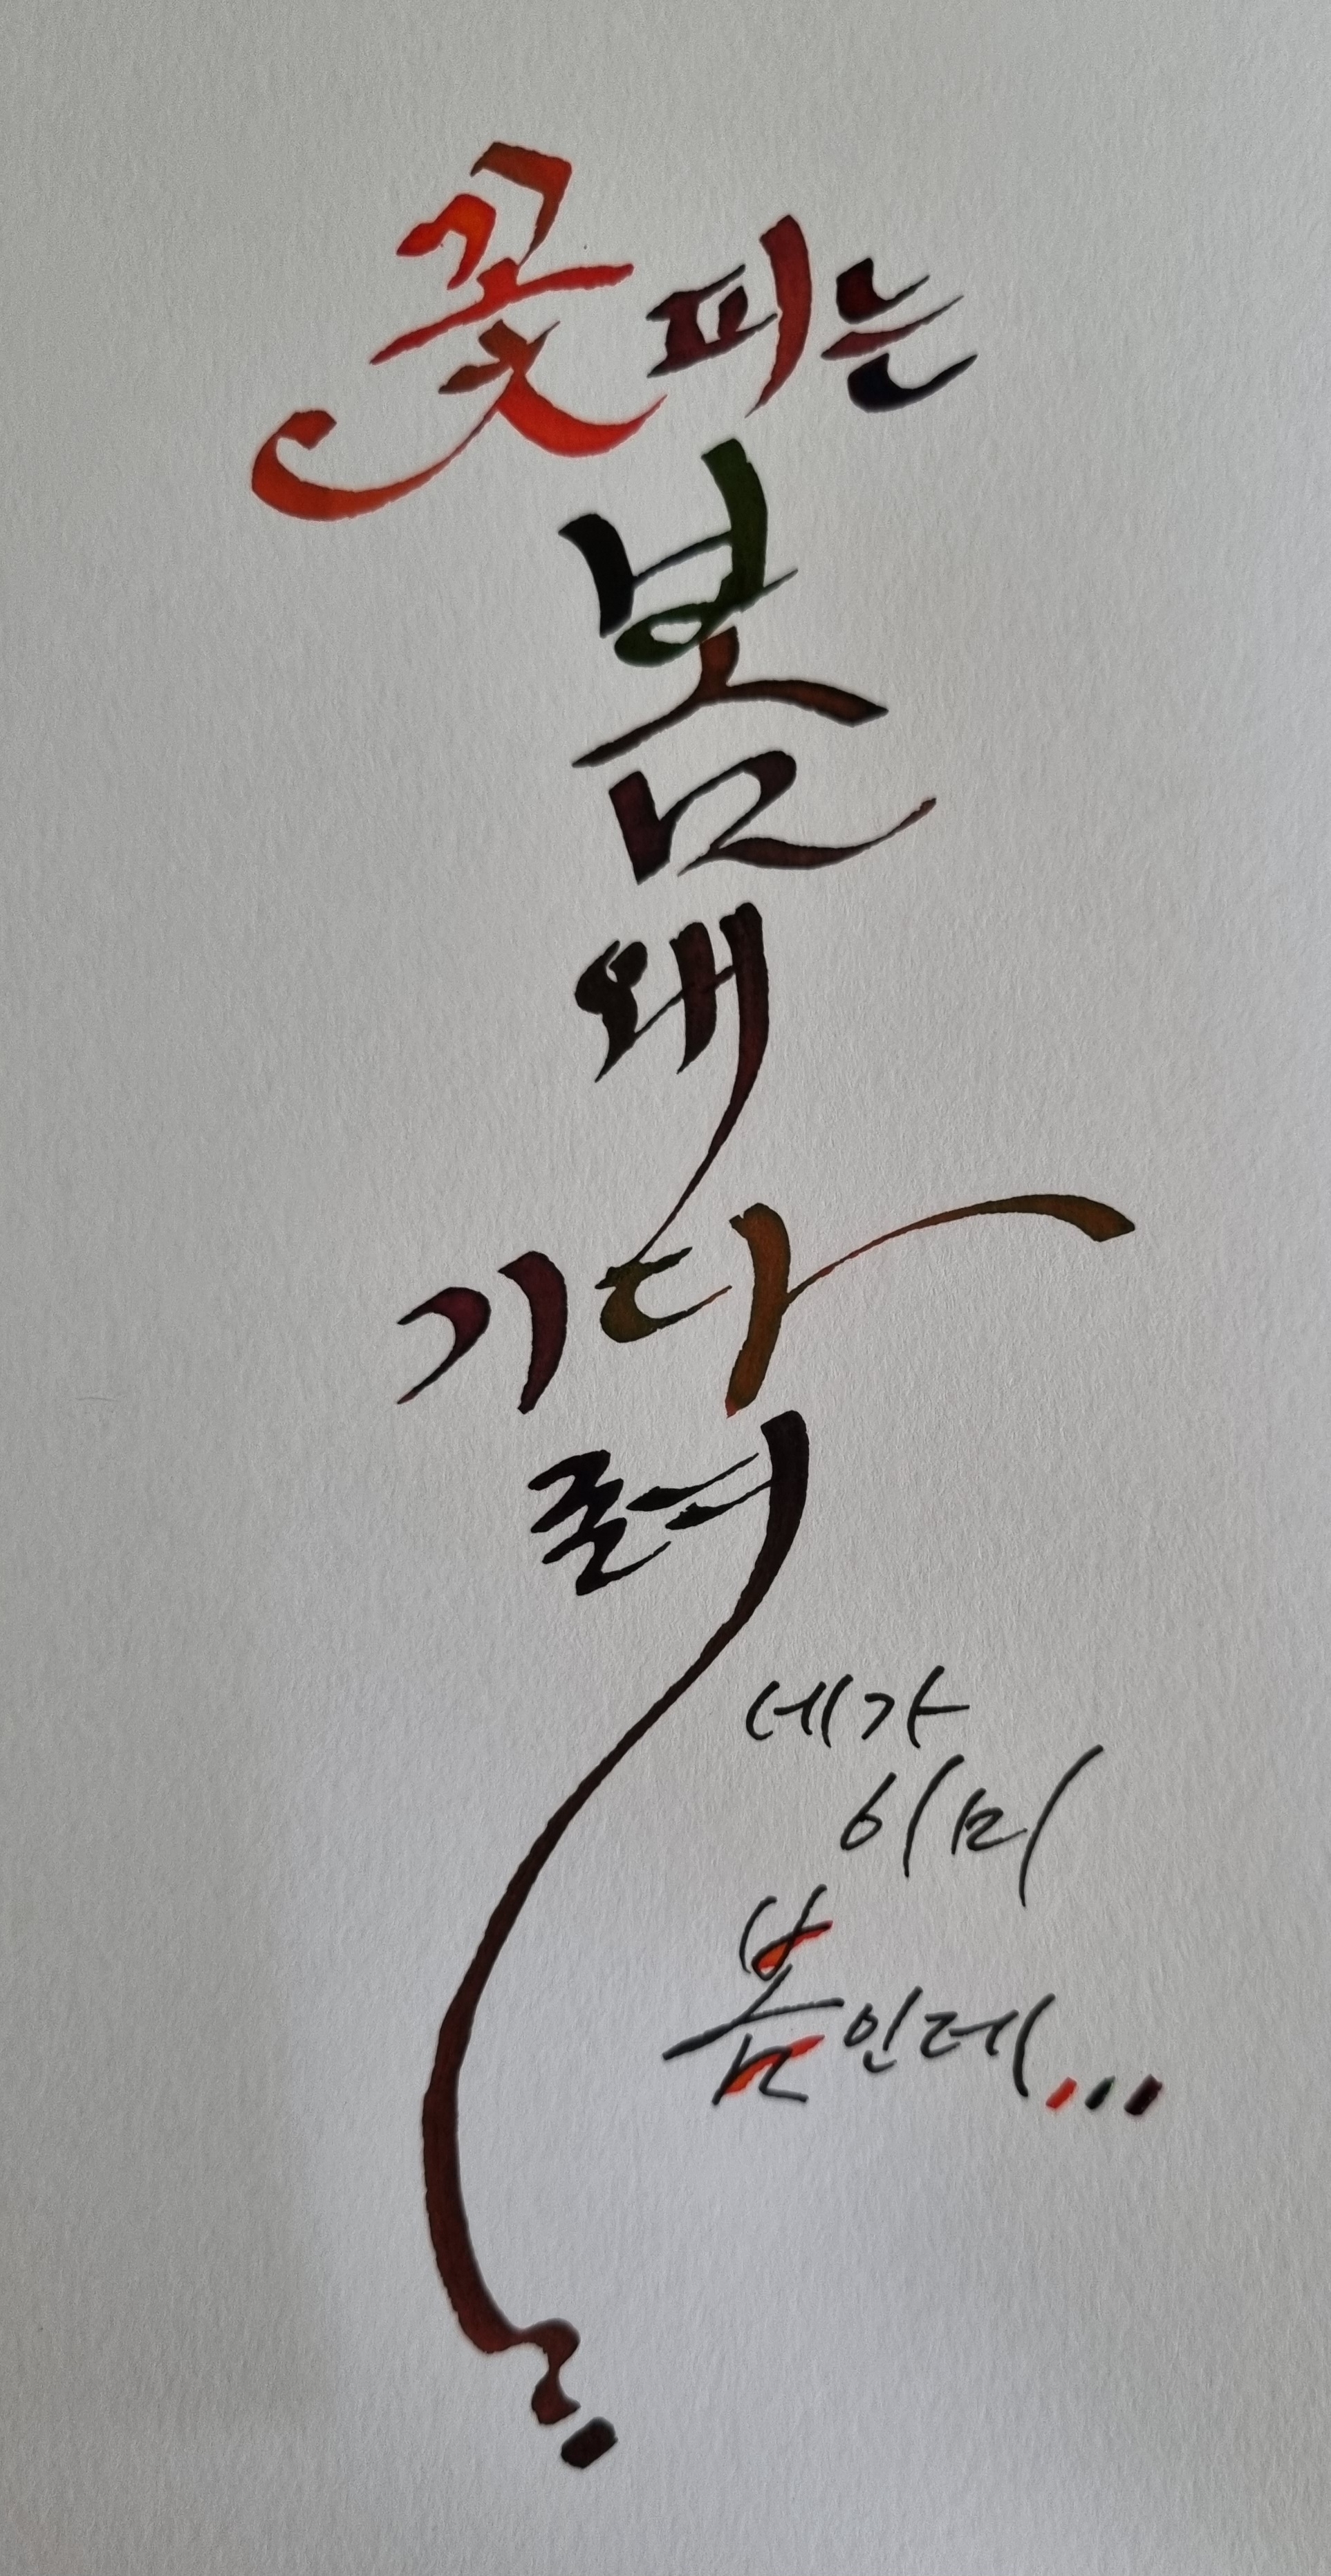 꽃피는
봄
왜
기다
려?
네가
이미
봄인데...